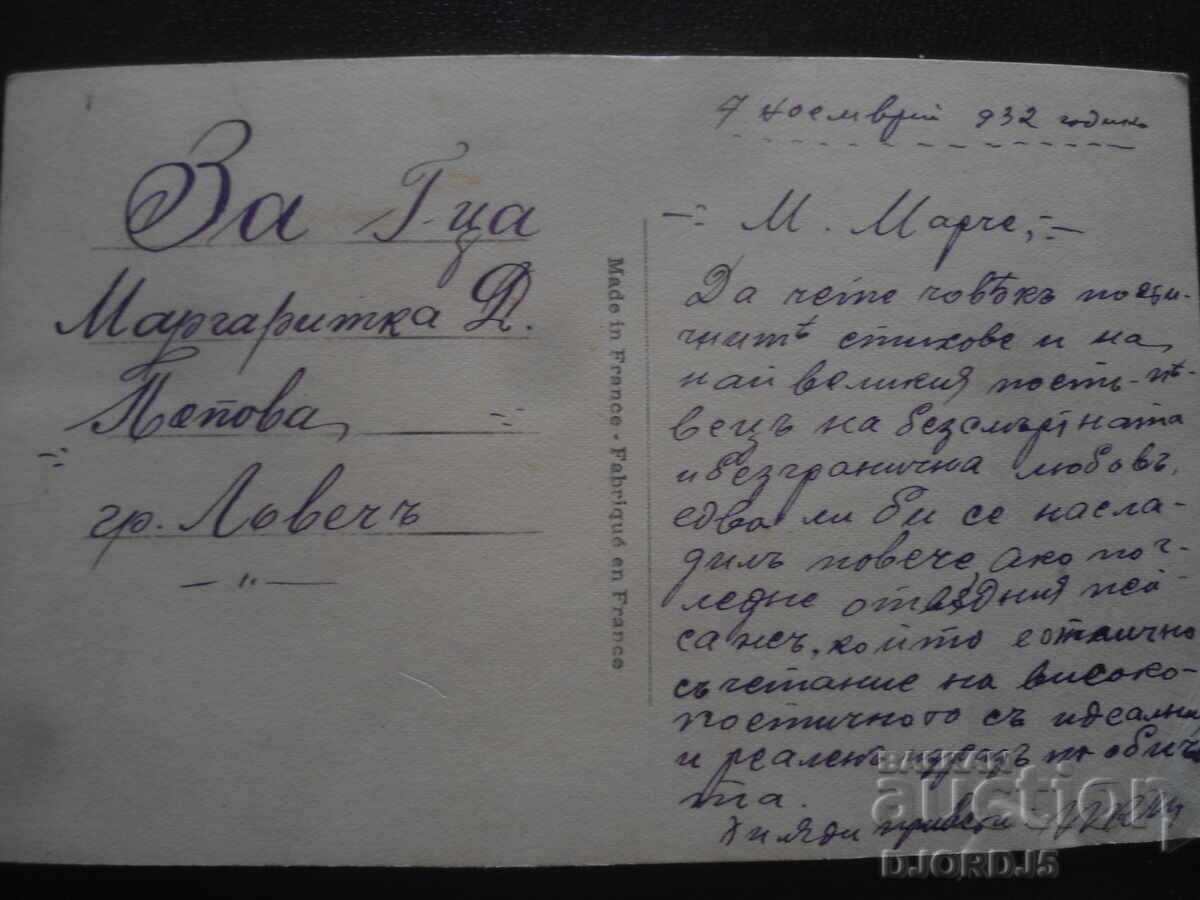 За Г-ца
Маргаритка Д.
Попова
гр. Ловечъ
Made in France • Fabriqué en France
7 ноемврий 932 година
М. Марче,
Да чете човѣкъ поети-
чнитѣ стихове и на
най великия поетъ-пѣ-
вецъ на безсмъртната
и безгранична любовъ,
едва ли би се насла-
дилъ повече, ако пог-
ледне отвѣдния пей
сажъ, който е отлично
съчетание на високо-
поетичното съ идеални
и реаленъ изразъ
та.
Хиляди привети
BALKAN
auction
DJORDJ5